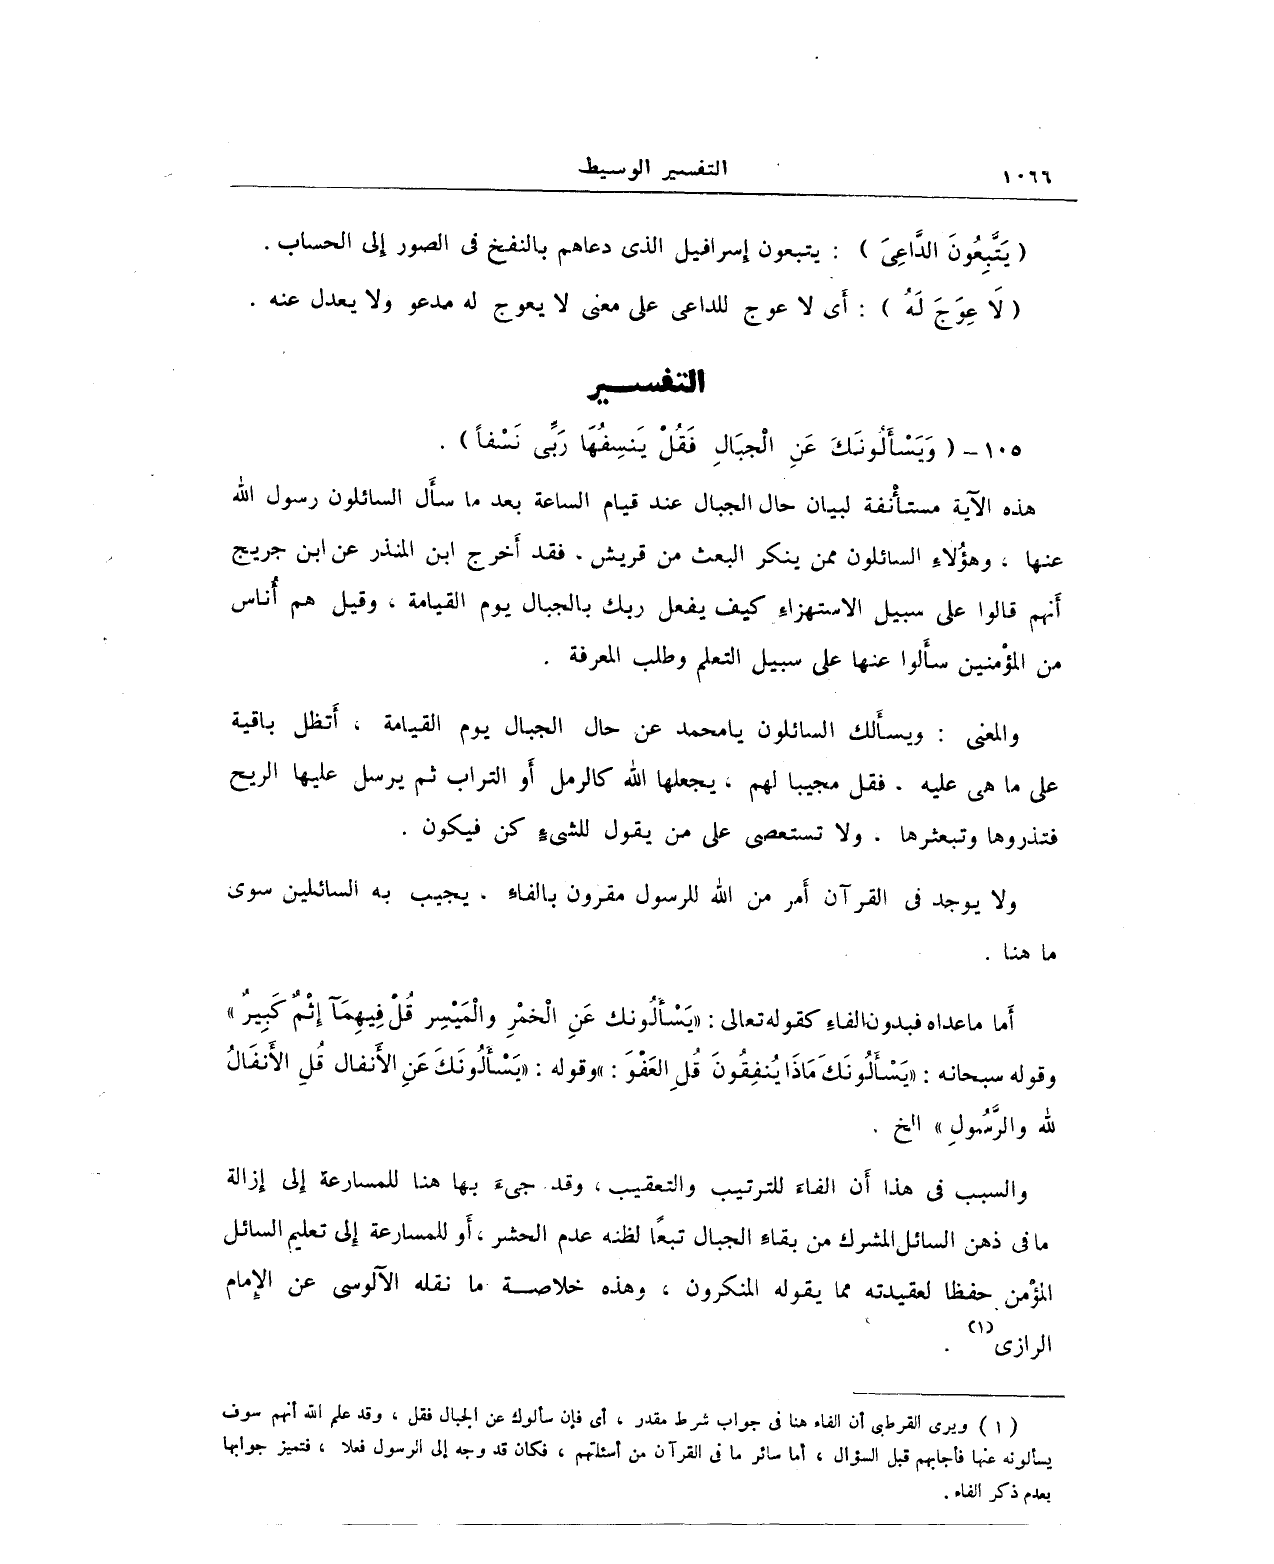 ١٠٦٦ التفسير الوسيط
( يَتَّبِعُونَ الدَّاعِىَ ) : يتبعون إسرافيل الذى دعاهم بالنفخ فى الصور إلى الحساب .
( لَا عِوَجَ لَهُ ) : أَى لا عوج للداعى على معنى لا يعوج له مدعو ولا يعدل عنه .
التفســـير
١٠٥ – ( وَيَسْأَلُونَكَ عَنِ الْجِبَالِ فَقُلْ يَنسِفُهَا رَبِّى نَسْفاً ) .
هذه الآية مستأْنفة لبيان حال الجبال عند قيام الساعة بعد ما سأَل السائلون رسول الله
عنها ، وهؤُلاءِ السائلون ممن ينكر البعث من قريش . فقد أَخرج ابن المنذر عن ابن جريج
أَنهم قالوا على سبيل الاستهزاءِ كيف يفعل ربك بالجبال يوم القيامة ، وقيل هم أُناس
من المؤْمنين سأَلوا عنها على سبيل التعلم وطلب المعرفة .
والمعنى : ويسأَلك السائلون يامحمد عن حال الجبال يوم القيامة ، أَتظل باقية
على ما هى عليه . فقل مجيبا لهم ، يجعلها الله كالرمل أَو التراب ثم يرسل عليها الريح
فتذروها وتبعثرها . ولا تستعصى على من يقول للشىءِ كن فيكون .
ولا يوجد فى القرآن أَمر من الله للرسول مقرون بالفاءِ . يجيب به السائلين سوى
ما هنا .
أَما ماعداه فبدون الفاءِ كقوله تعالى : «يَسْأَلُونك عَنِ الْخمْرِ والْمَيْسِر قُلْ فِيهِمَآ إِثْمٌ كَبِيرٌ »
وقوله سبحانه : «يَسْأَلُونَكَ مَاذَا يُنفِقُونَ قُلِ العَفْوَ : »وقوله : «يَسْأَلُونَكَ عَنِ الأَنفال قُلِ الأَنفَالُ
لله والرَّسُولِ » الخ .
والسبب فى هذا أَن الفاءَ للترتيب والتعقيب ، وقد جىءَ بها هنا للمسارعة إلى إزالة
ما فى ذهن السائل المشرك من بقاءِ الجبال تبعًا لظنه عدم الحشر ، أَو للمسارعة إلى تعليم السائل
المؤْمن حفظا لعقيدته مما يقوله المنكرون ، وهذه خلاصــة ما نقله الآلوسى عن الإِمام
الرازى (١) .
( ١ ) ويرى القرطبى أن الفاء هنا فى جواب شرط مقدر ، أى فإن سألوك عن الجبال فقل ، وقد علم الله أنهم سوف
يسألونه عنها فأجابهم قبل السؤال ، أما سائر ما فى القرآن من أسئلتهم ، فكان قد وجه إلى الرسول فعلا ، فتميز جوابها
بعدم ذكر الفاء .